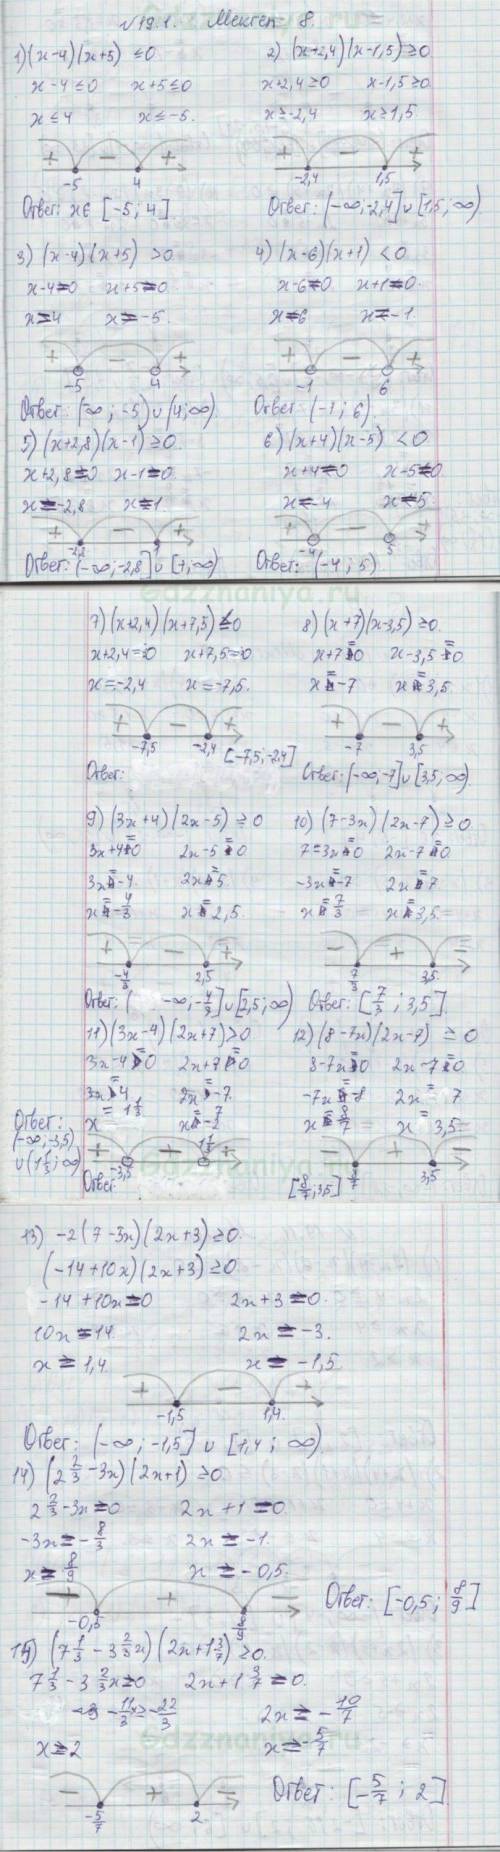 №19.1. Мектеп 8.
1) (x-4)(x+5) ≤0
2) (x+2,4)(x-1,5) ≥0
x-4≤0 x+5≤0
x+2,4≥0 x-1,5≥0
x≤4 x≤-5.
x≥-2,4 x≥1,5
+ - +
-5 4
+ - +
-2,4 1,5
Ответ: x∈ [-5; 4].
Ответ: (-∞;-2,4]∪[1,5; ∞)
3) (x-4)(x+5) >0
4) (x-6)(x+1) <0
x-4=0 x+5=0
x-6=0 x+1=0
x=4 x=-5.
x=6 x=-1.
+ - +
-5 4
+ - +
-1 6
Ответ: (-∞; -5)∪(4;∞)
Ответ: (-1; 6)
5) (x+2,8)(x-1) ≥0
6) (x+4)(x-5) <0
x+2,8=0 x-1=0
x+4=0 x-5=0
x=-2,8 x=1
x=-4 x=5
+ - +
-2,8 1
-4 5
Ответ: (-∞;-2,8]∪[1;∞)
Ответ: (-4; 5)
gdzznaniya.ru
7) (x+2,4)(x+7,5)≤0
8) (x+7)(x-3,5) ≥0
x+2,4=0 x+7,5=0
x+7=0 x-3,5=0
x=-2,4 x=-7,5.
x=-7 x=3,5.
+ - +
-7,5 -2,4
+ - +
-7 3,5
[-7,5;-2,4]
Ответ:
Ответ: (-∞,-7]∪[3,5; ∞)
9) (3x+4)(2x-5) ≥0
10) (7-3x)(2x-7) ≥0
3x+4=0 2x-5=0
7-3x=0 2x-7=0
3x=-4 2x=5
-3x=-7 2x=7
x=-4/3 x=2,5
x=7/3 x=3,5
+ - +
-4/3 2,5
- + -
7/3 3,5
Ответ: (-∞,-4/3]∪[2,5; ∞)
Ответ: [7/3; 3,5].
11) (3x-4)(2x+7)>0
12) (8-7x)(2x-7) ≥0
3x-4=0 2x+7=0
8-7x=0 2x-7=0
3x=4 2x=-7
-7x=-8 2x=7
x=1 1/3 x=-7/2
x=8/7 x=3,5
Ответ:
(-∞;-3,5)
∪(1 1/3; ∞)
+ - +
-3,5 1 1/3
- + -
8/7 3,5
Ответ:
[8/7;3,5]
13) -2(7-5x)(2x+3)≥0.
(-14+10x)(2x+3)≥0
-14+10x=0 2x+3=0
10x=14 2x=-3.
x=1,4 x=-1,5
+ - +
-1,5 1,4.
Ответ: (-∞; -1,5] ∪ [1,4; ∞)
14) (2 2/3-3x)(2x+1) ≥0.
2 2/3-3x=0 2x+1=0.
-3x=-8/3 2x=-1.
x=8/9 x=-0,5.
- + -
-0,5 8/9
Ответ: [-0,5; 8/9]
15) (7 1/3-3 2/3x)(2x+1 3/7)≥0.
7 1/3-3 2/3x=0 2x+1 3/7=0.
-11/3x=-22/3 2x=-10/7
x=2 x=-5/7
gdzznaniya.ru
- + -
-5/7 2
Ответ: [-5/7; 2]